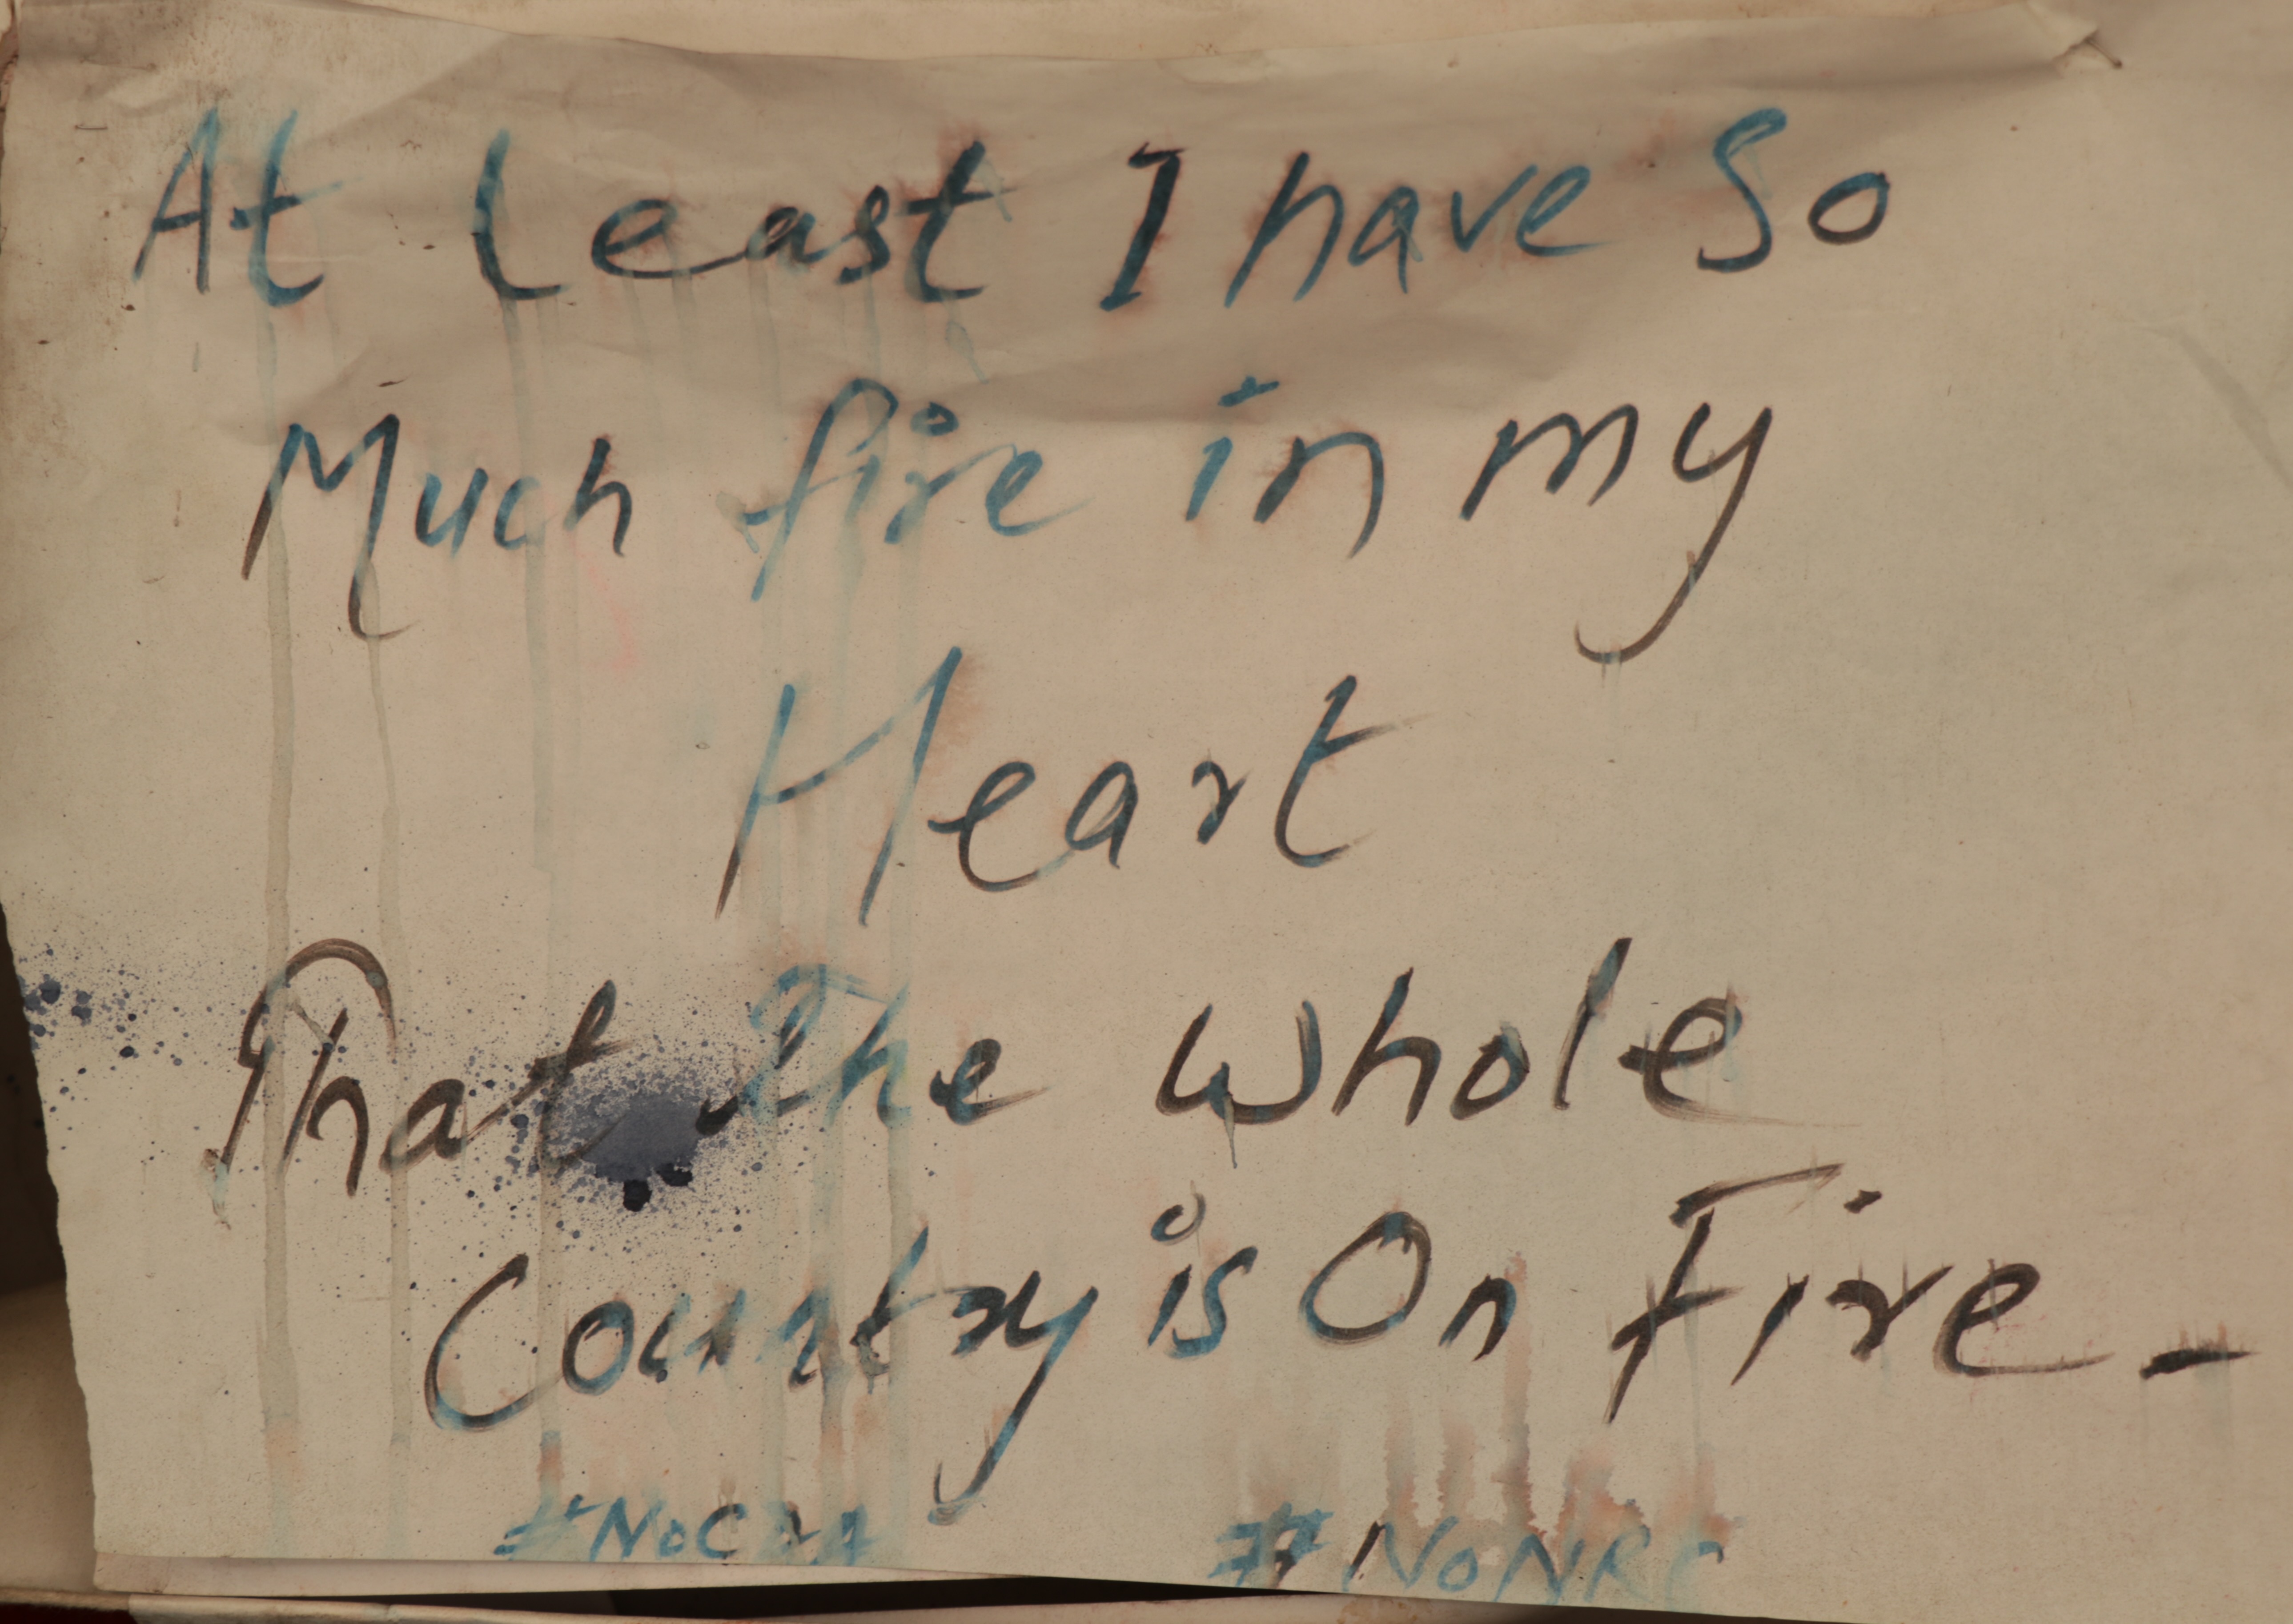 At Least I have So
Much fire in my
Heart
That The whole
Country is On Fire -
#NoCAA #NoNRC